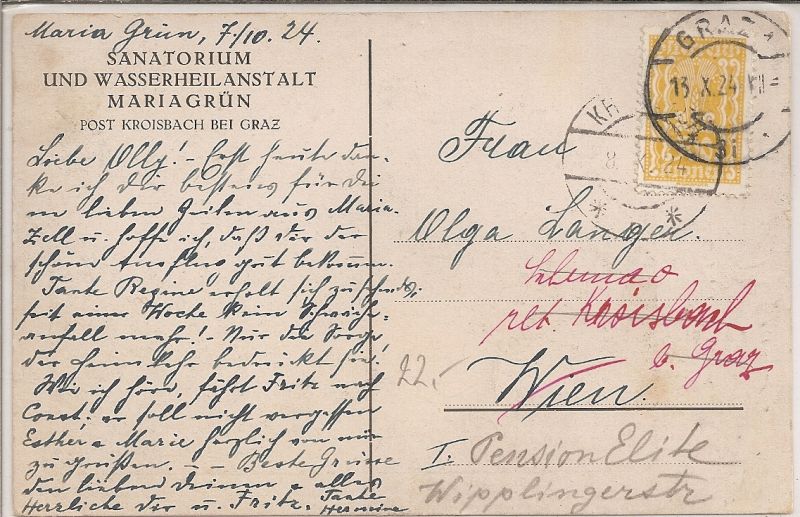 Maria Grün, 7./10. 24.
SANATORIUM
UND WASSERHEILANSTALT
MARIAGRÜN
POST KROISBACH BEI GRAZ
Liebe Olly! – Erst heute dan-
ke ich dir bestens für dei
ne lieben Zeilen aus Maria-
Zell u. hoffe ich, daß dir der
schöne Ausflug gut bekommen.
Tante Regine erholt sich zusehends,
seit einer Woche kein Schwäche-
anfall mehr! – Nur die Sorge
der Heimkehr bedrückt sie!
Wie ich höre, fährt Fritz nach
Const.; er soll nicht vergessen
Esther & Marie herzlich von mir
zu grüßen. – – Beste Grüsse
den lieben deinen & alles
Herzliche dir u. Fritz. Tante
Hermine
GRAZ 1
13. X. 24
KR
8. X. 24
Frau
Olga Langer.
ret Kroisbach
b. Graz
Wien.
22.-
I. Pension Elite
Wipplingerstr